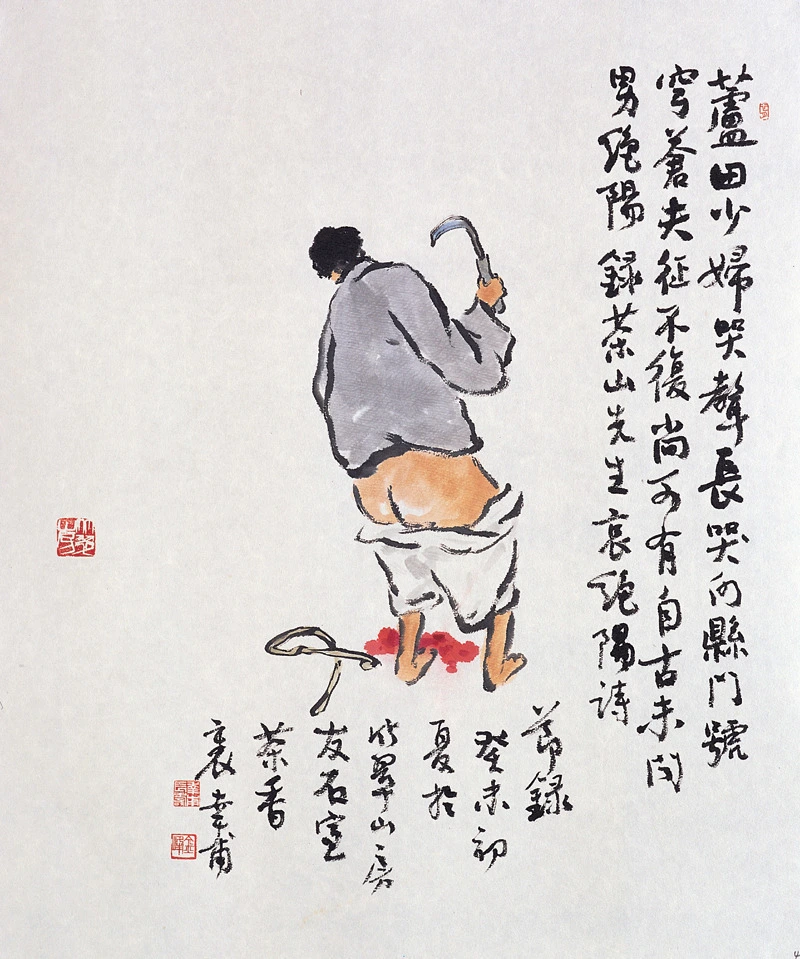 蘆田少婦哭聲長哭向縣門號
穹蒼夫征不復尚可有自古未聞
男絶陽 錄茶山先生哀絶陽詩
節錄
癸未初
夏於
翠山房
友石室
茶香
裏 幸甫